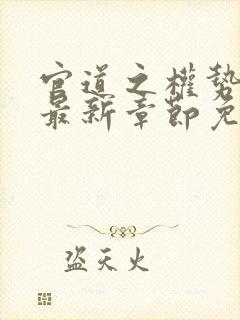 官道之權勢
最新章節免
盗天火